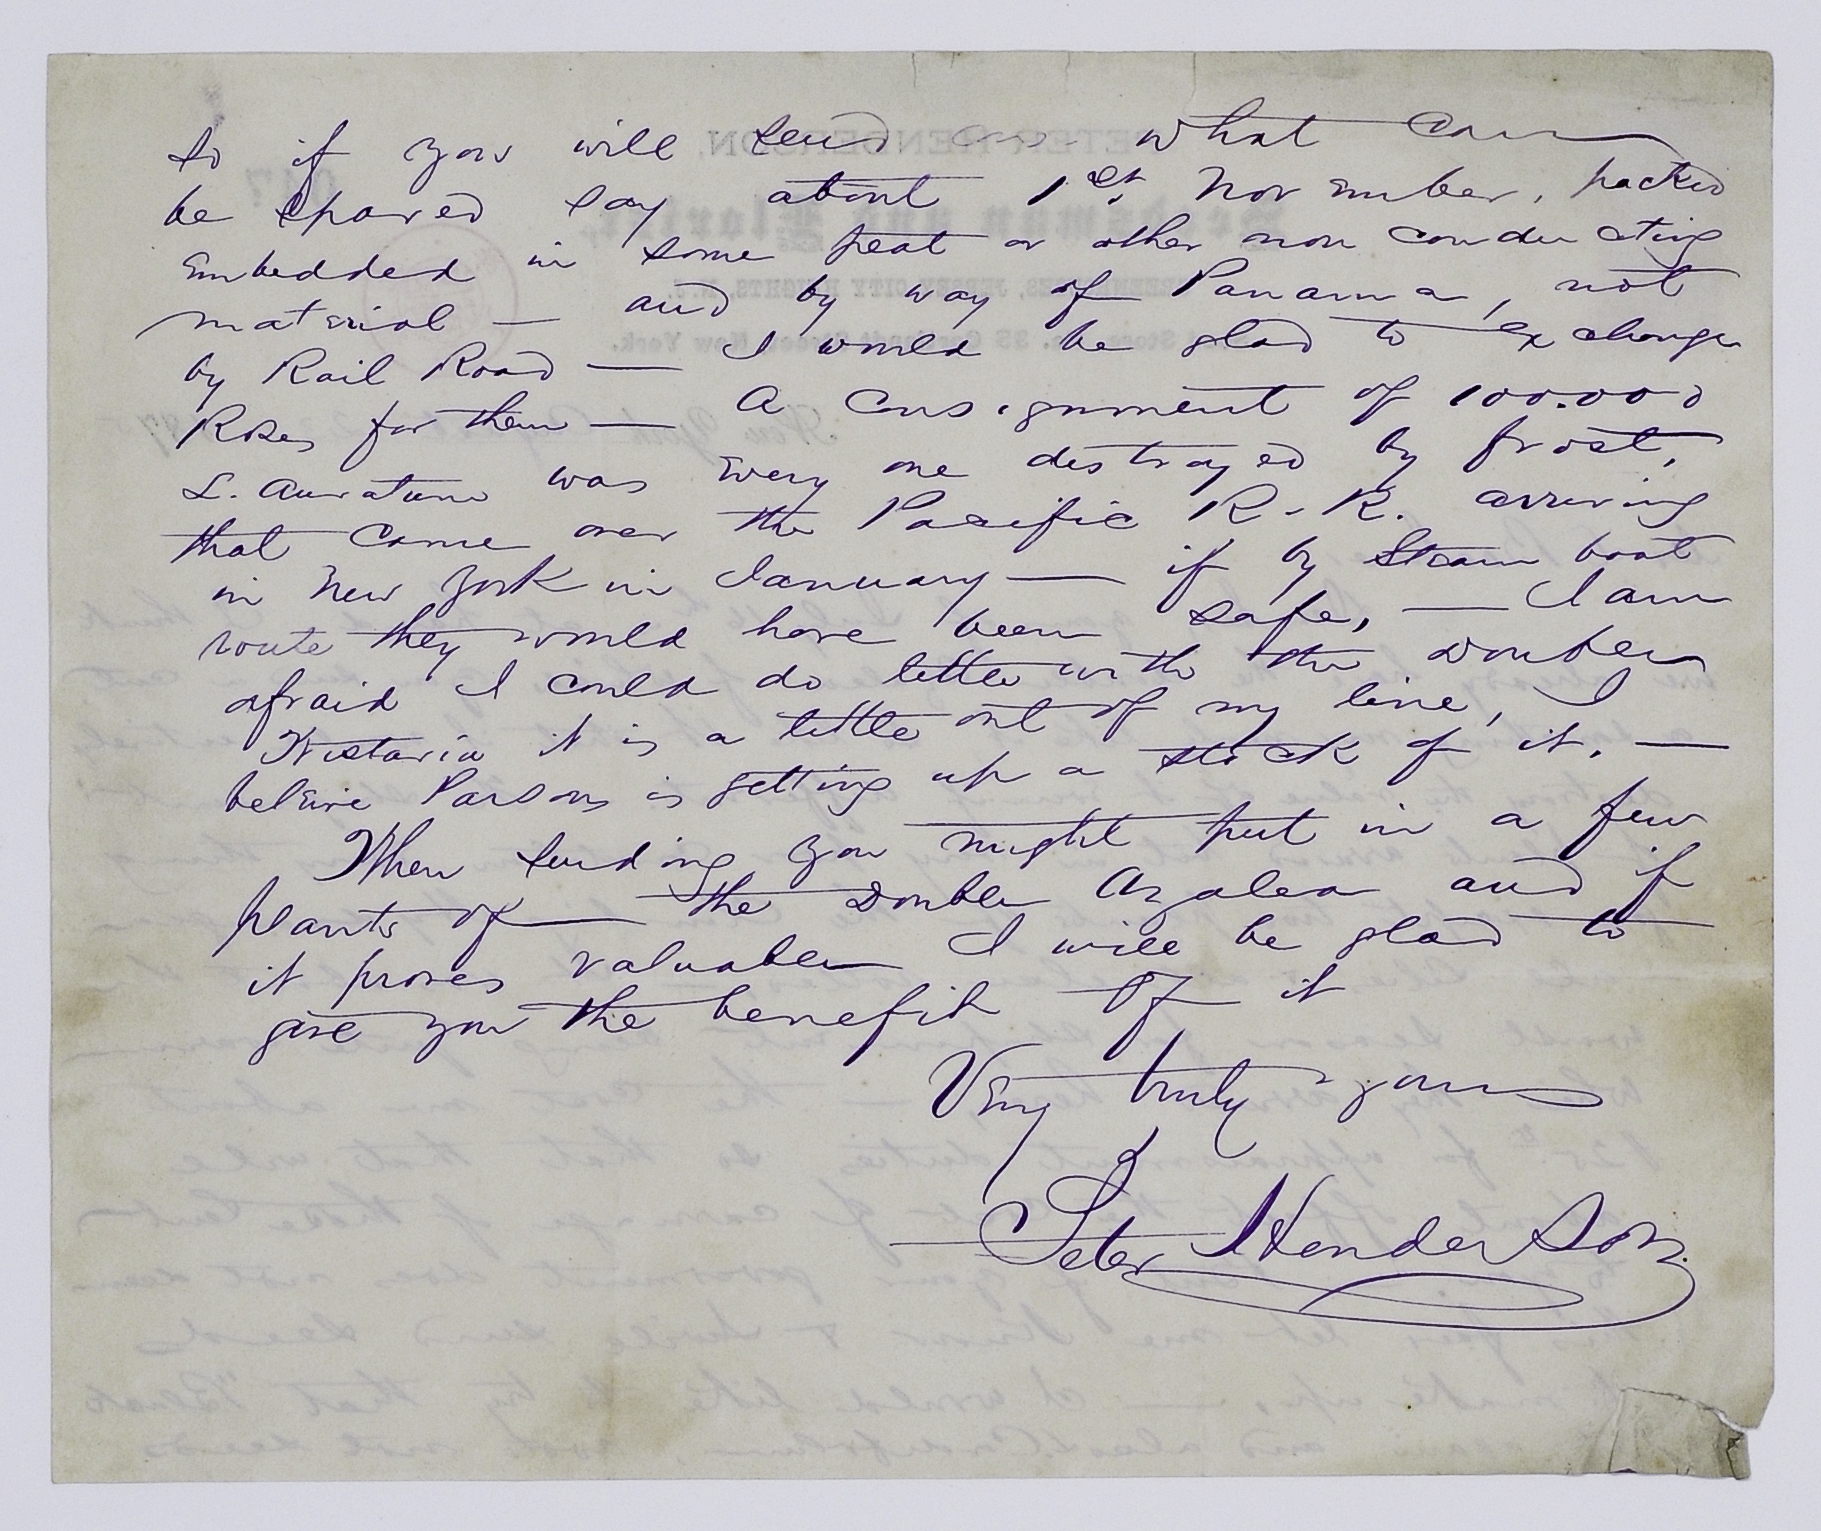 so if you will send me what can
be spared say about 1st, November, packed
Embedded in some peat or other non conducting
material — and by way of Panama, not
by Rail Road — I would be glad to exchange
Roses for them — A consignment of 100.000
L. Auratum was Every one destroyed by frost,
that came over the Pacific R.R. arriving
in New York in January — if by Steam boat
route they would have been safe, — I am
afraid I could do little with the Double
Wistaria it is a little out of my line, I
beleive Parsons is getting up a stock of it. —
When sending you might put in a few
plants of — the Double Azalea and if
it proves valuable I will be glad to
give you the benefit of it
Very truly yours
Peter Henderson.